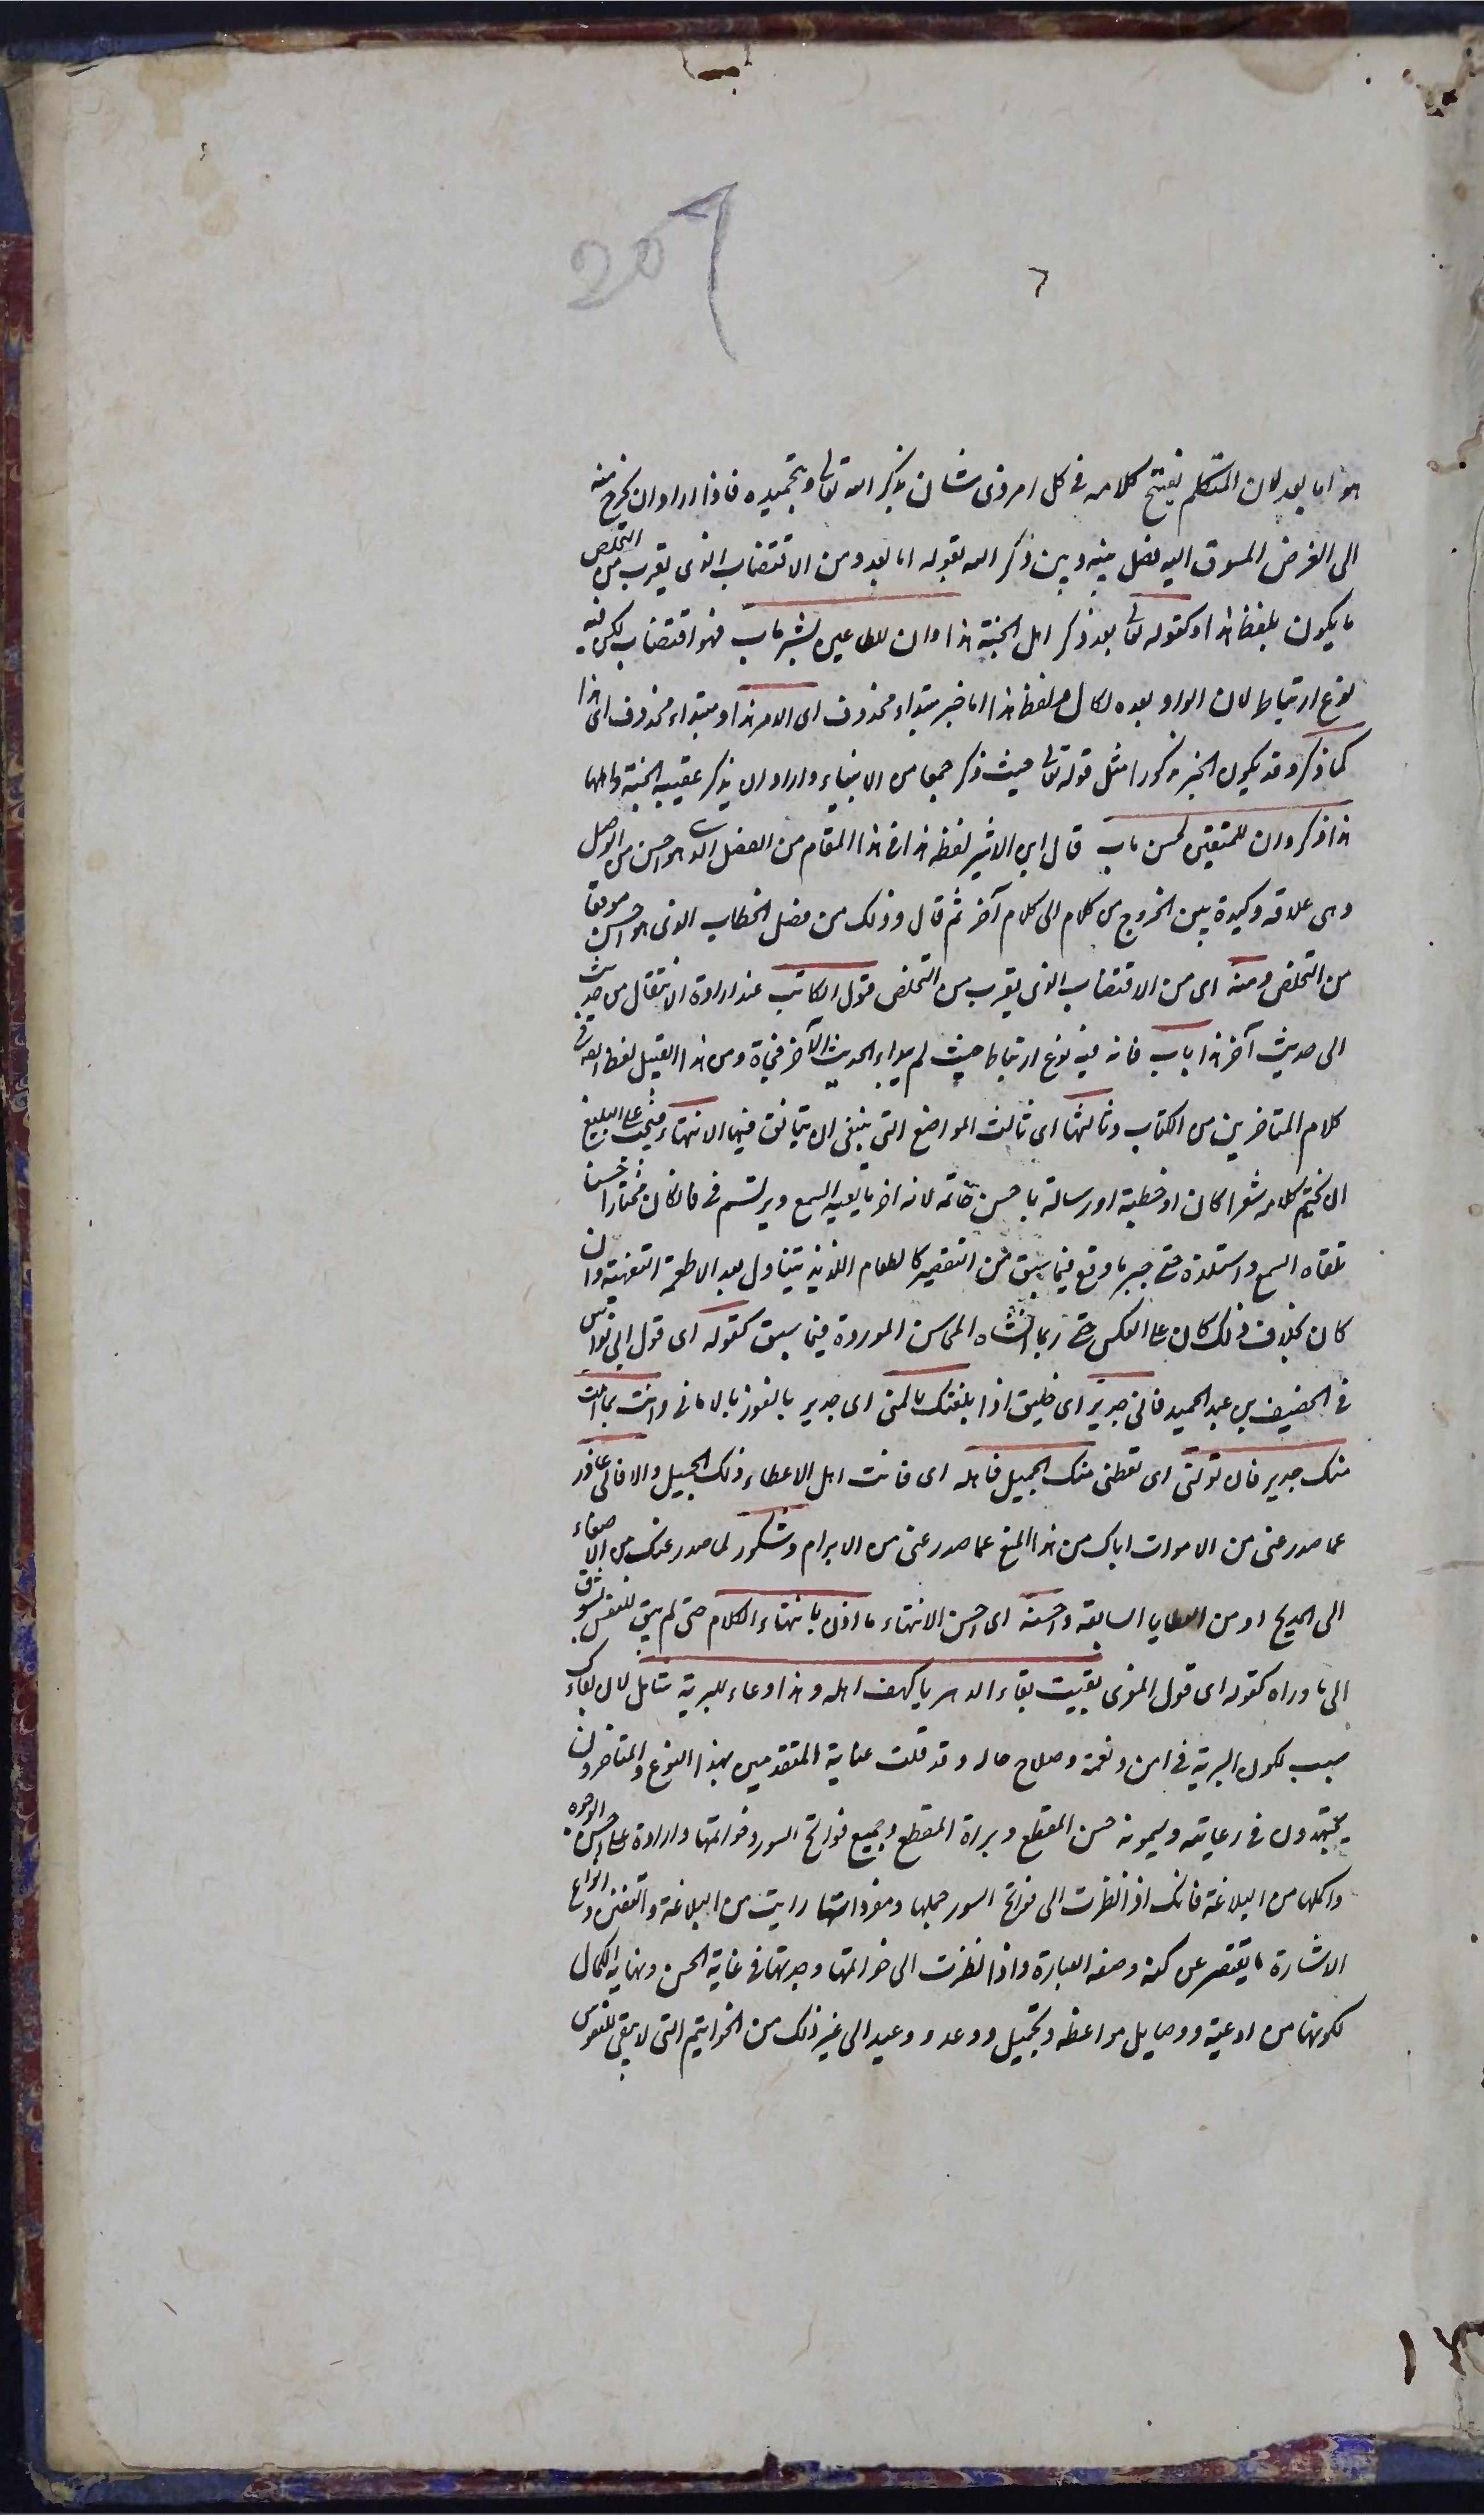 207
٦
هو اما بعد لان المتكلم يفتتح كلامه فى كل امر ذى شان بذكر الله تعالى وبتحميده فاذا اراد ان يخرج منه
الى الغرض المسوق اليه فصل بينه وبين ذكر الله بقوله اما بعد ومن الاقتضاب الذى يقرب من التخلص
ما يكون بلفظ هذا كقوله تعالى بعد ذكر اهل الجنة هذا وان للطاغين لشر مآب فهو اقتضاب لكن فيه
نوع ارتباط لان الواو بعده للحال ولفظ هذا اما خبر مبتداء محذوف اى الامر هذا او مبتداء محذوف اى هذا
كما ذكر وقد يكون الخبر مذكورا مثل قوله تعالى حيث ذكر جمعا من الانبياء واراد ان يذكر عقيبه الجنة واهلها
هذا ذكر وان للمتقين لحسن مآب قال ابن الاثير لفظ هذا فى هذا المقام من الفصل الذى هو احسن من الوصل
وهى علاقة وكيدة بين الخروج من كلام الى كلام آخر ثم قال وذلك من فصل الخطاب الذى هو احسن موقعا
من التخلص ومنه اى من الاقتضاب الذى يقرب من التخلص قول الكاتب عند ارادة الانتقال من حديث
الى حديث آخر هذا باب فانه فيه نوع ارتباط حيث لم يبداء الحديث الآخر فجاة ومن هذا القبيل لفظ ايضا فى
كلام المتاخرين من الكتاب وثالثها اى ثالث المواضع التى ينبغى ان يتانق فيها الانتهاء فيجب على البليغ
ان يختم كلامه شعرا كان او خطبة او رسالة باحسن خاتمة لانه اخر ما يعيه السمع ويرتسم فى فان كان مختارا حسنا
تلقاه السمع واستلذه حتى جبر ما وقع فيما سبق من التقصير كالطعام اللذيذ يتناول بعد الاطعمة التفهة وان
كان بخلاف ذلك كان على العكس حتى ربما انساه المحاسن الموردة فيما سبق كقوله اى قول ابى نواس
فى الخصيف بن عبد الحميد فانى جدير اى خليق اذا بلغتك بالمنى اى جدير بالفوز بالامانى وانت بما املت
منك جدير فان تولنى اى تعطنى منك الجميل فاهله اى فانت اهل الاعطاء ذلك الجميل والا فانى عاذر
عما صدر عنى من الاموات اياك من هذا المنع عما صدر عنى من الابرام وشكور لما صدر عنك من الاصغاء
الى المديح او من العطايا السابقة واحسنه اى احسن الانتهاء ما اذن بانتهاء الكلام حتى لم يبق للنفس تشوق
الى ما وراه كقوله اى قول المعرى بقيت بقاء الدهر يا كهف اهله وهذا دعاء للبرية شامل لان بقاءك
سبب لكون البرية فى امن ونعمة وصلاح حال وقد قلت عناية المتقدمين بهذا النوع والمتاخرون
يجتهدون فى رعايته ويسمونه حسن المقطع وبراة المقطع وجميع فواتح السور وخواتمها واردة على احسن الوجوه
واكملها من البلاغة فانك اذا نظرت الى فواتح السور جملها ومفرداتها رايت من البلاغة والتفنن وانواع
الاشارة ما يقصر عن كنه وصفه العبارة واذا نظرت الى خواتمها وجدتها فى غاية الحسن ونهاية الكمال
لكونها من ادعية ووصايا ومواعظ وتحميد ووعد ووعيد الى غير ذلك من الخواتيم التى لا يبقى للنفوس